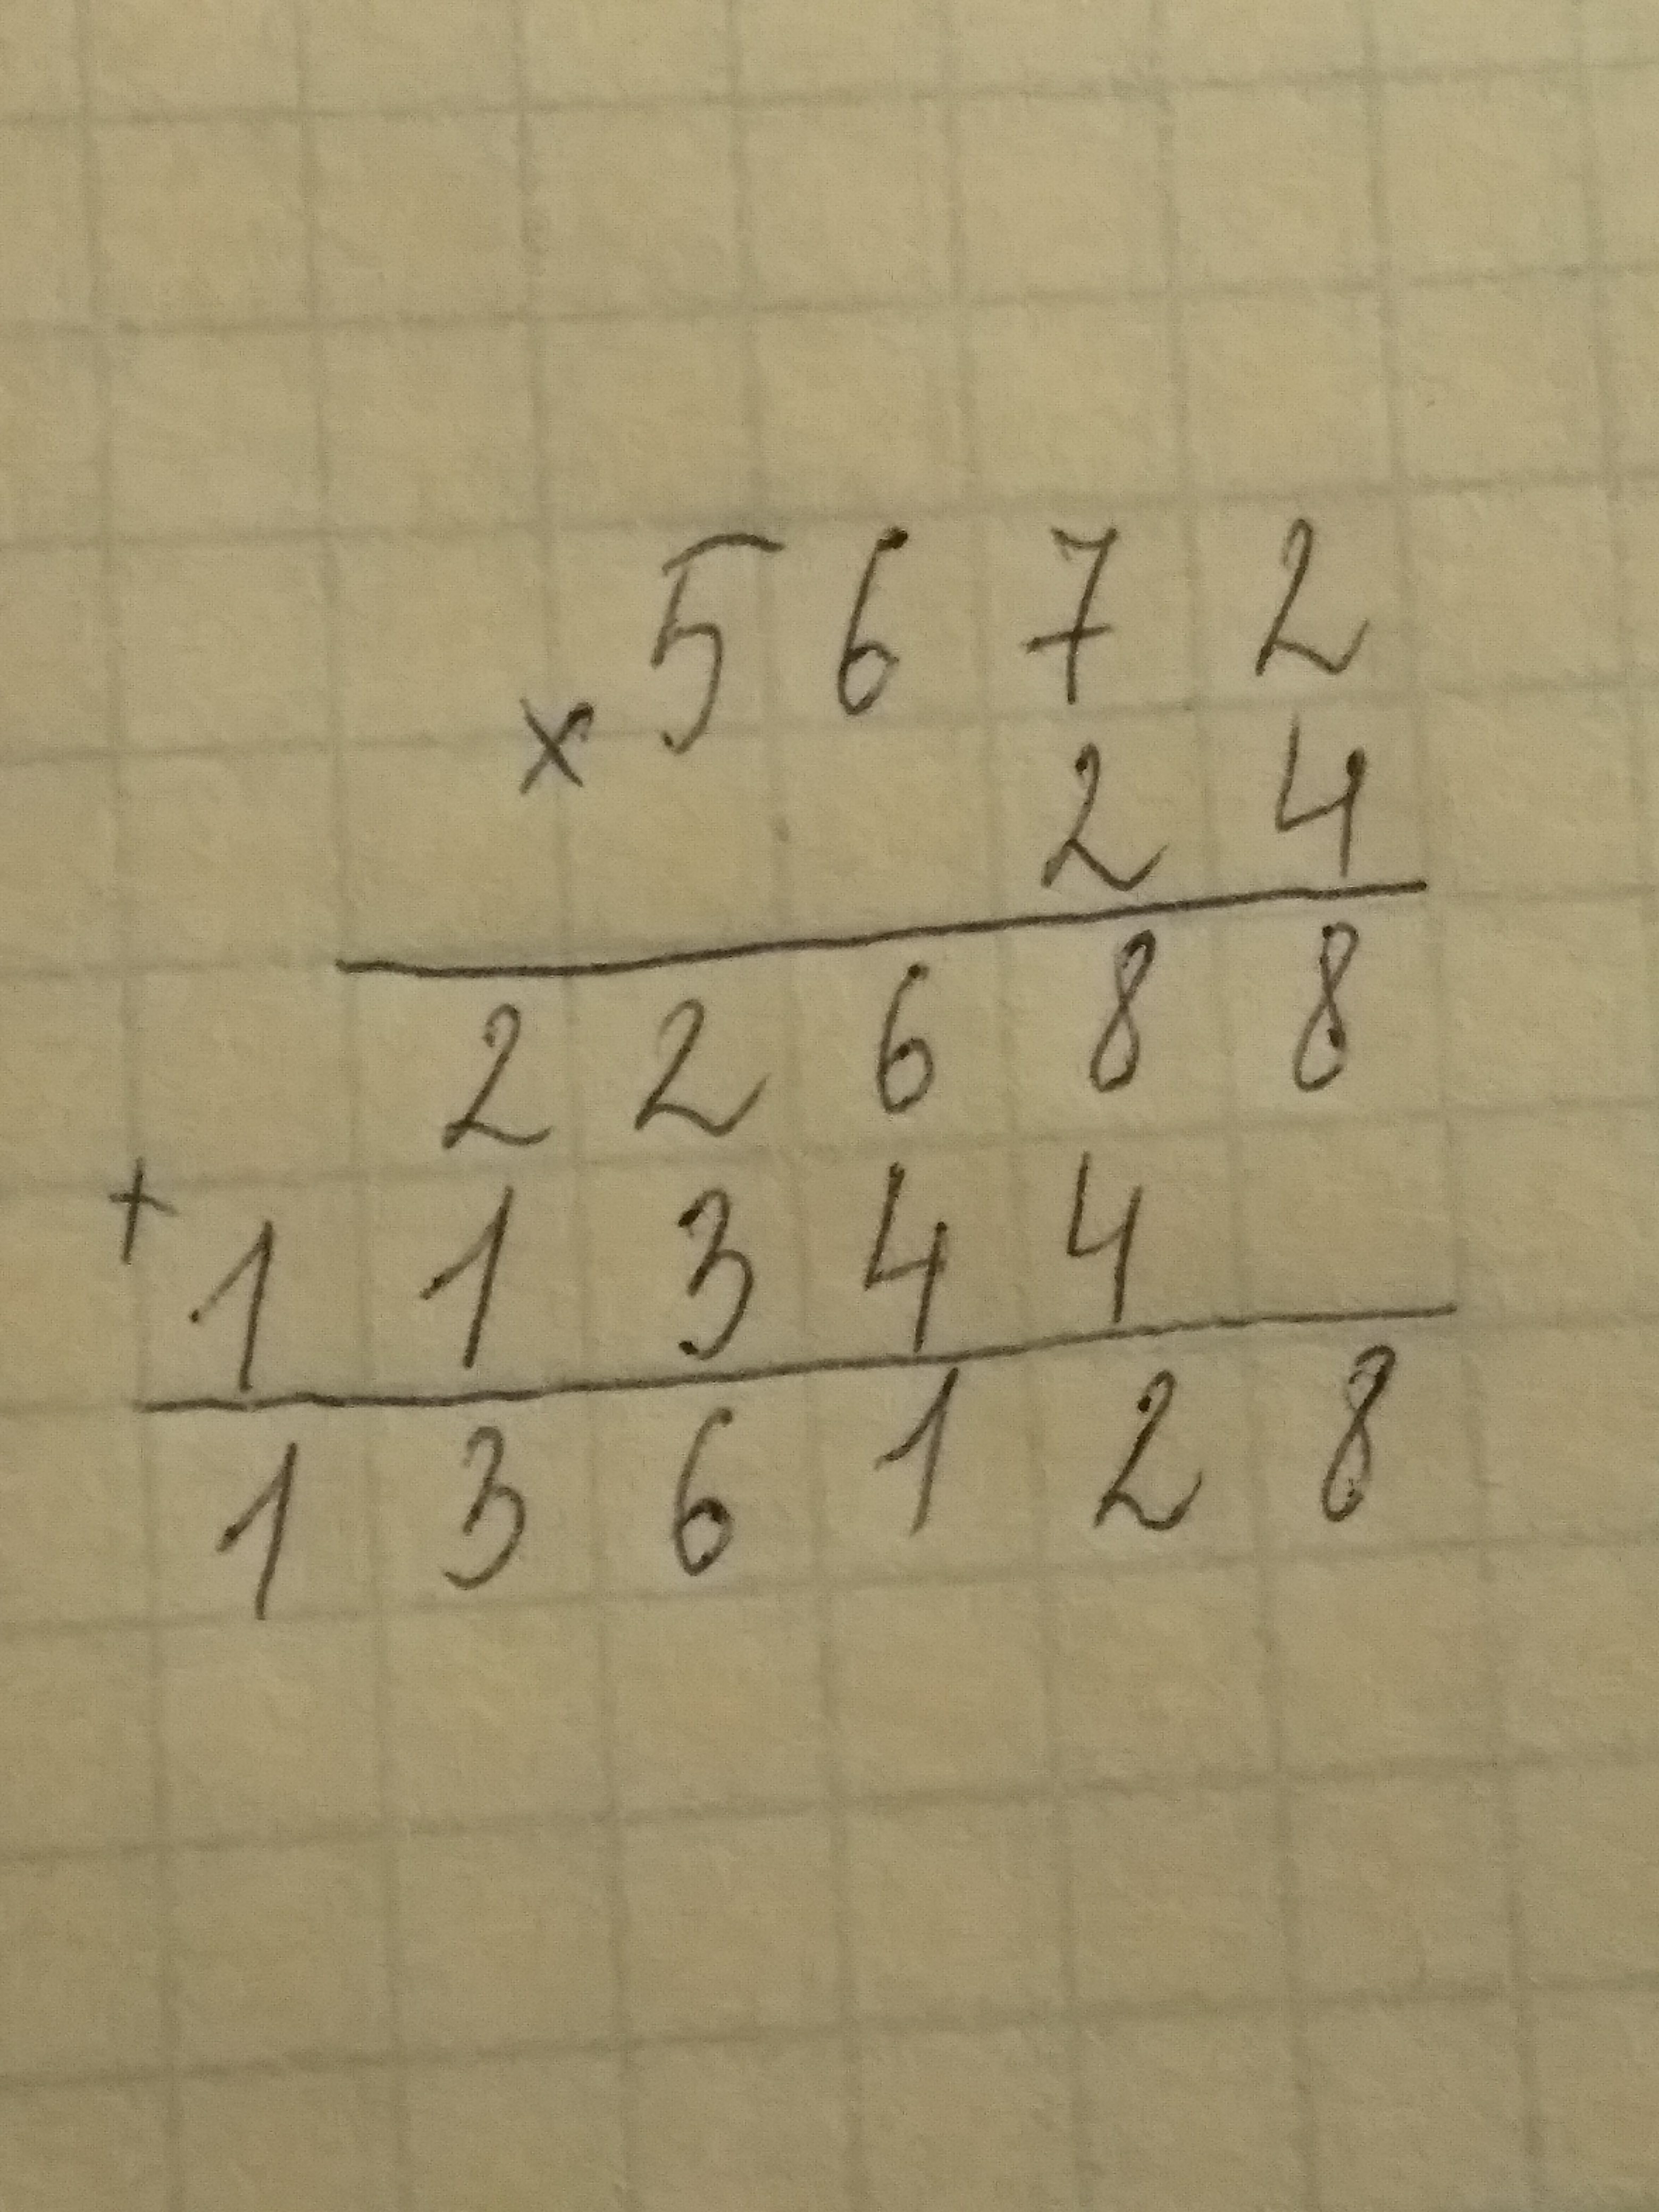 5672
x
24
22688
+
11344
136128